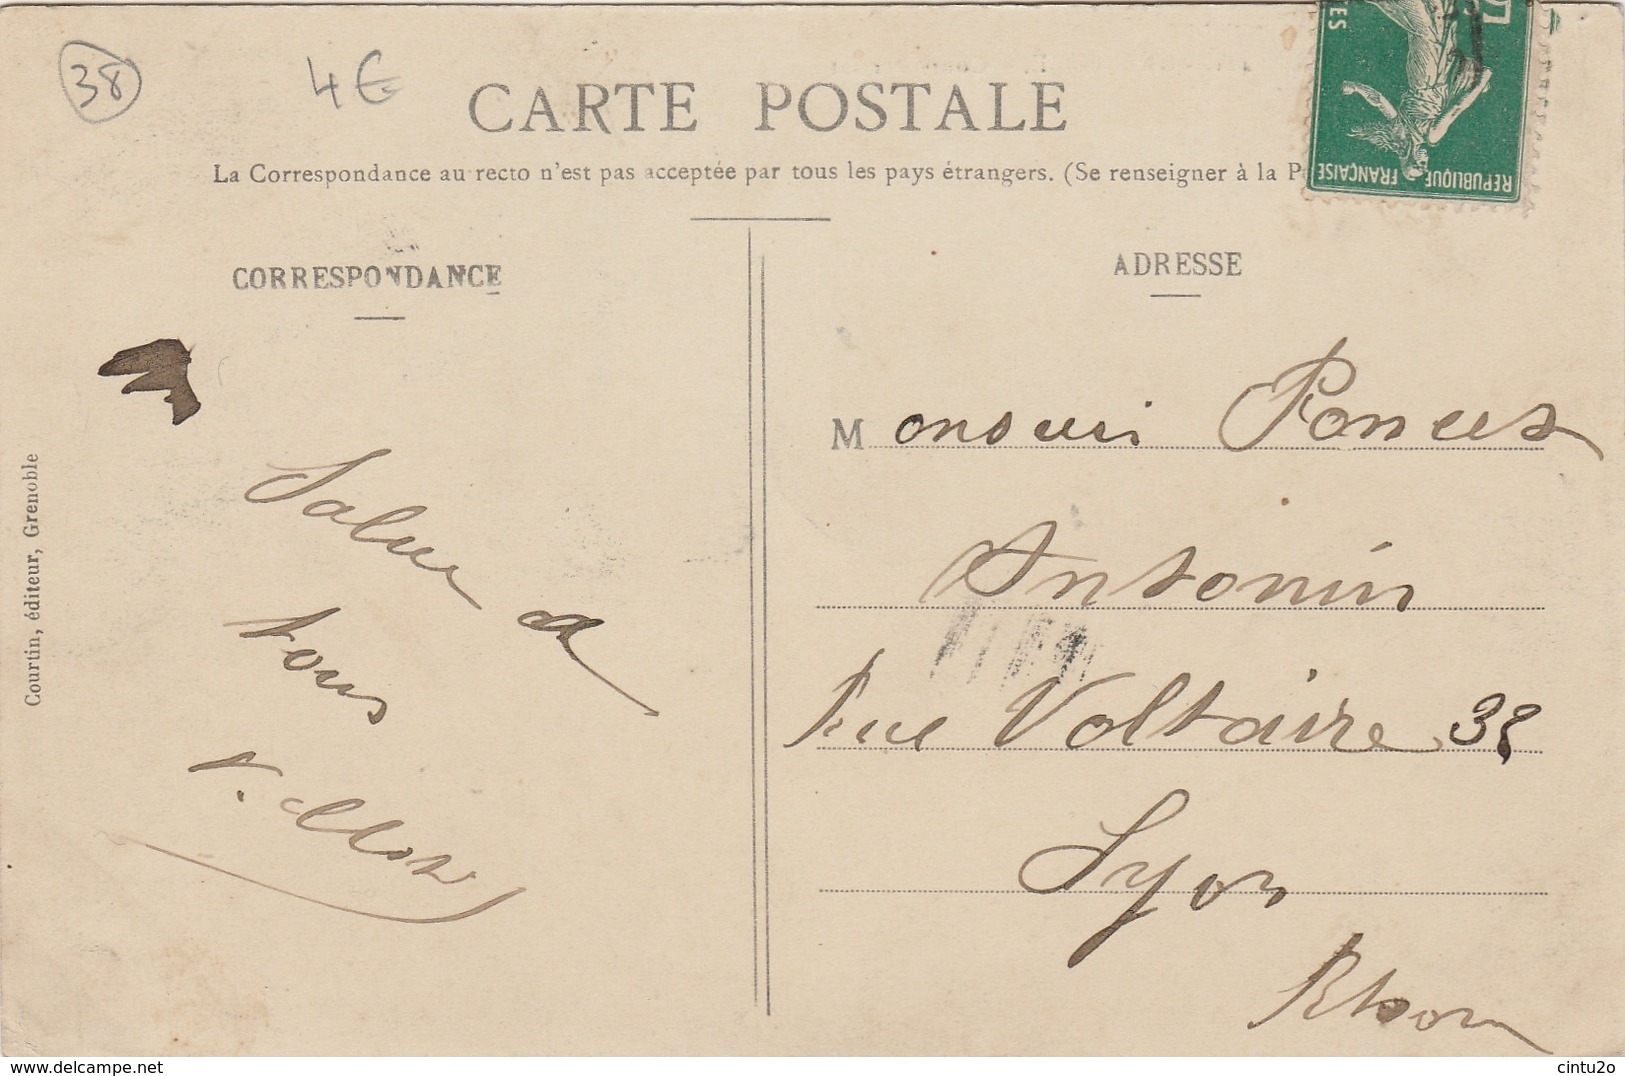 38
4€
CARTE POSTALE
La Correspondance au recto n'est pas acceptée par tous les pays étrangers. (Se renseigner à la P
REPUBLIQUE FRANÇAISE
CORRESPONDANCE
ADRESSE
Salue a
tous
V.
Courtin, éditeur, Grenoble
Monsieur Poncet
Antonin
Rue Voltaire 38
Lyon
Rhone
www.delcampe.net
cintu2o